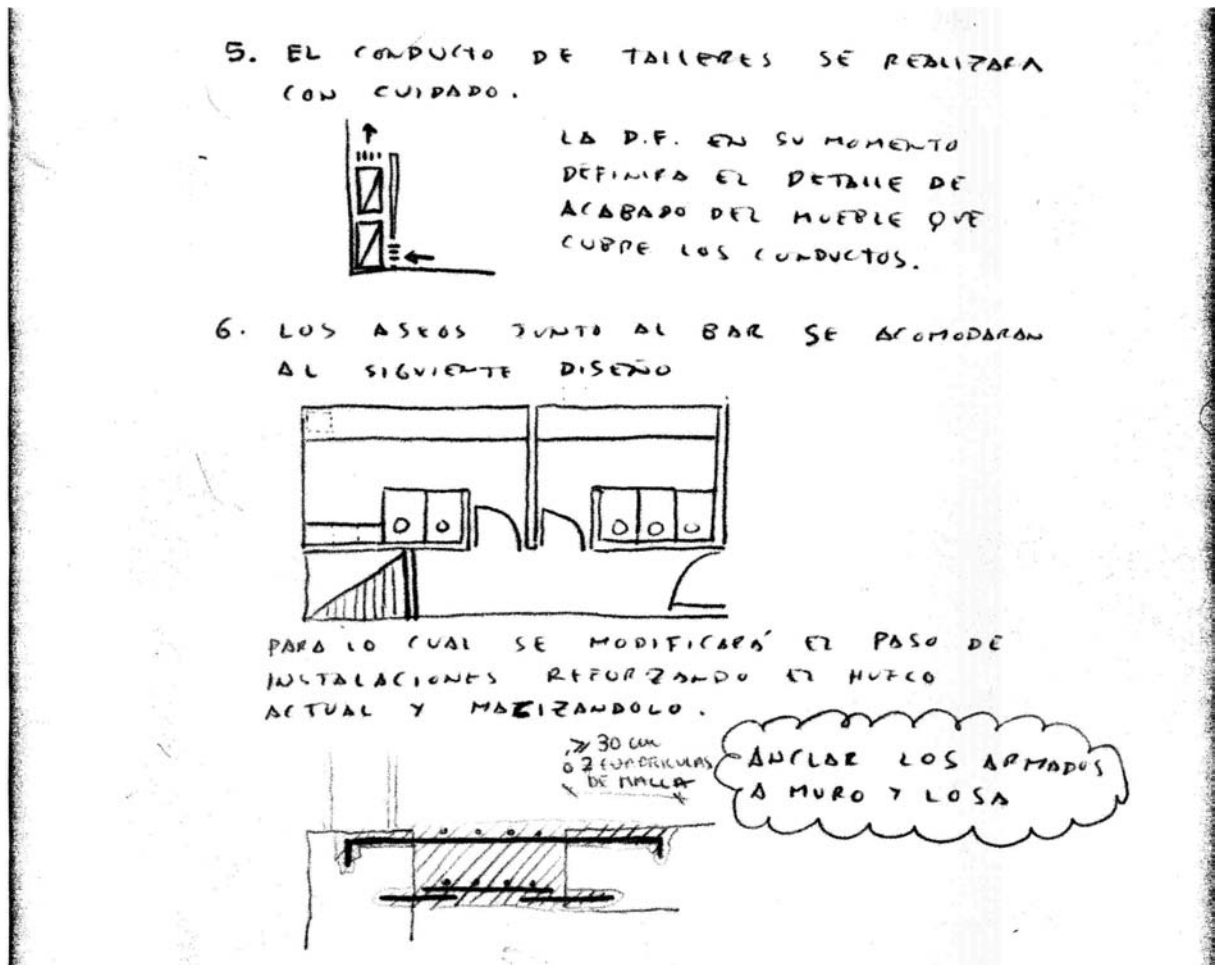 5. EL CONDUCTO DE TALLERES SE REALIZARA
CON CUIDADO.
LA D.F. EN SU MOMENTO
DEFINIRA EL DETALLE DE
ACABADO DEL MUEBLE QUE
CUBRE LOS CONDUCTOS.
6. LOS ASEOS JUNTO AL BAR SE ACOMODARAN
AL SIGUIENTE DISEÑO
PARA LO CUAL SE MODIFICARÁ EL PASO DE
INSTALACIONES REFORZANDO EL HUECO
ACTUAL Y MACIZANDOLO.
≥ 30 cm
o 2 CUADRICULAS
DE MALLA
ANCLAR LOS ARMADOS
A MURO Y LOSA